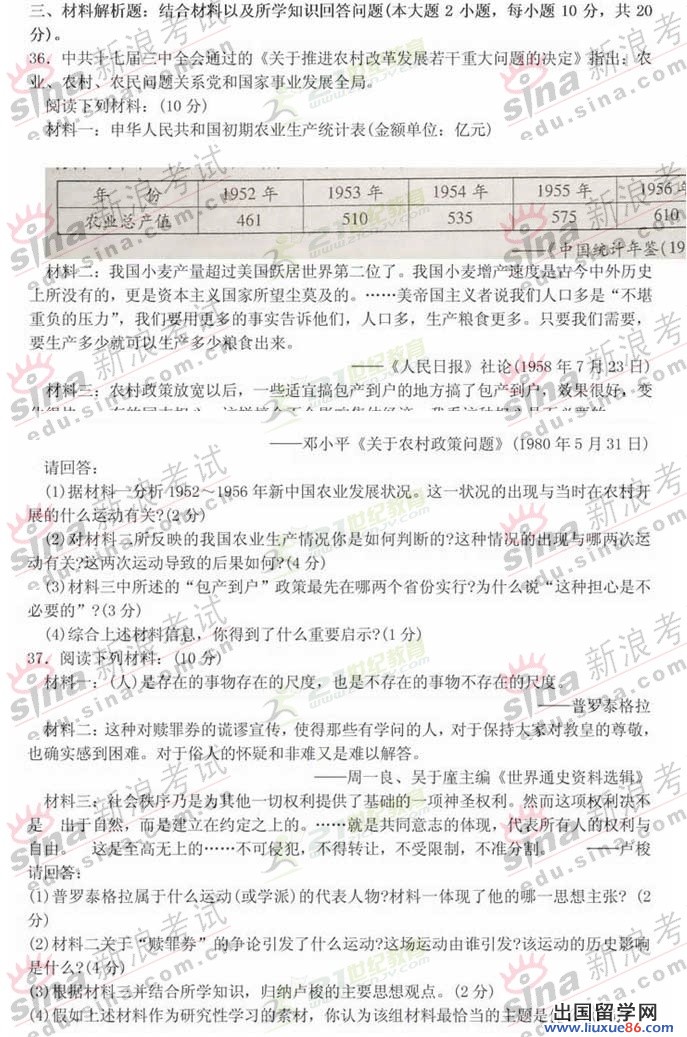 三、材料解析题：结合材料以及所学知识回答问题(本大题 2 小题，每小题 10 分，共 20
分)。
36．中共十七届三中全会通过的《关于推进农村改革发展若干重大问题的决定》指出：农
业、农村、农民问题关系党和国家事业发展全局。
阅读下列材料：(10 分)
材料一：中华人民共和国初期农业生产统计表(金额单位：亿元)
年 份 1952 年 1953 年 1954 年 1955 年 1956 年
农业总产值 461 510 535 575 610
《中国统计年鉴(19
材料二：我国小麦产量超过美国跃居世界第二位了。我国小麦增产速度是古今中外历史
上所没有的，更是资本主义国家所望尘莫及的。……美帝国主义者说我们人口多是“不堪
重负的压力”，我们要用更多的事实告诉他们，人口多，生产粮食更多。只要我们需要，
要生产多少就可以生产多少粮食出来。
——《人民日报》社论(1958 年 7 月 23 日)
材料三：农村政策放宽以后，一些适宜搞包产到户的地方搞了包产到户，效果很好，变
——邓小平《关于农村政策问题》(1980 年 5 月 31 日)
请回答：
(1)据材料一分析 1952～1956 年新中国农业发展状况。这一状况的出现与当时在农村开
展的什么运动有关?(2 分)
(2)对材料二所反映的我国农业生产情况你是如何判断的?这种情况的出现与哪两次运
动有关?这两次运动导致的后果如何?(4 分)
(3)材料三中所述的“包产到户”政策最先在哪两个省份实行?为什么说“这种担心是不
必要的”?(3 分)
(4)综合上述材料信息，你得到了什么重要启示?(1 分)
37．阅读下列材料：(10 分)
材料一：(人)是存在的事物存在的尺度，也是不存在的事物不存在的尺度。
——普罗泰格拉
材料二：这种对赎罪券的荒谬宣传，使得那些有学问的人，对于保持大家对教皇的尊敬，
也确实感到困难。对于俗人的怀疑和非难又是难以解答。
——周一良、吴于廑主编《世界通史资料选辑》
材料三：社会秩序乃是为其他一切权利提供了基础的一项神圣权利。然而这项权利决不
是 出于自然，而是建立在约定之上的。……就是共同意志的体现，代表所有人的权利与
自由。 这是至高无上的……不可侵犯，不得转让，不受限制，不准分割。 ——卢梭
请回答：
(1)普罗泰格拉属于什么运动(或学派)的代表人物?材料一体现了他的哪一思想主张? (2
分)
(2)材料二关于“赎罪券”的争论引发了什么运动?这场运动由谁引发?该运动的历史影响
是什么?(4 分)
(3)根据材料三并结合所学知识，归纳卢梭的主要思想观点。(2 分)
(4)假如上述材料作为研究性学习的素材，你认为该组材料最恰当的主题是
出国留学网
www.liuxue86.com
sina 新浪考试
edu.sina.com.cn
21世纪教育